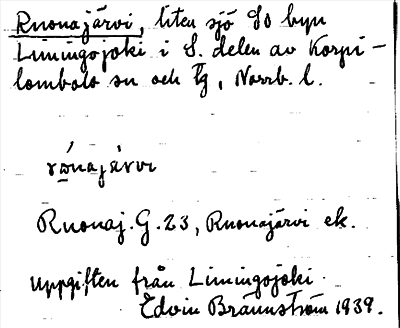 Ruonajärvi, liten sjö SO byn
Limingojoki i S. delen av Korpi-
lombolo sn och tg, Norrb. l.
Ruonaj. G. 23, Ruonajärvi ek.
Uppgiften från Limingojoki.
Edvin Brännström 1939.